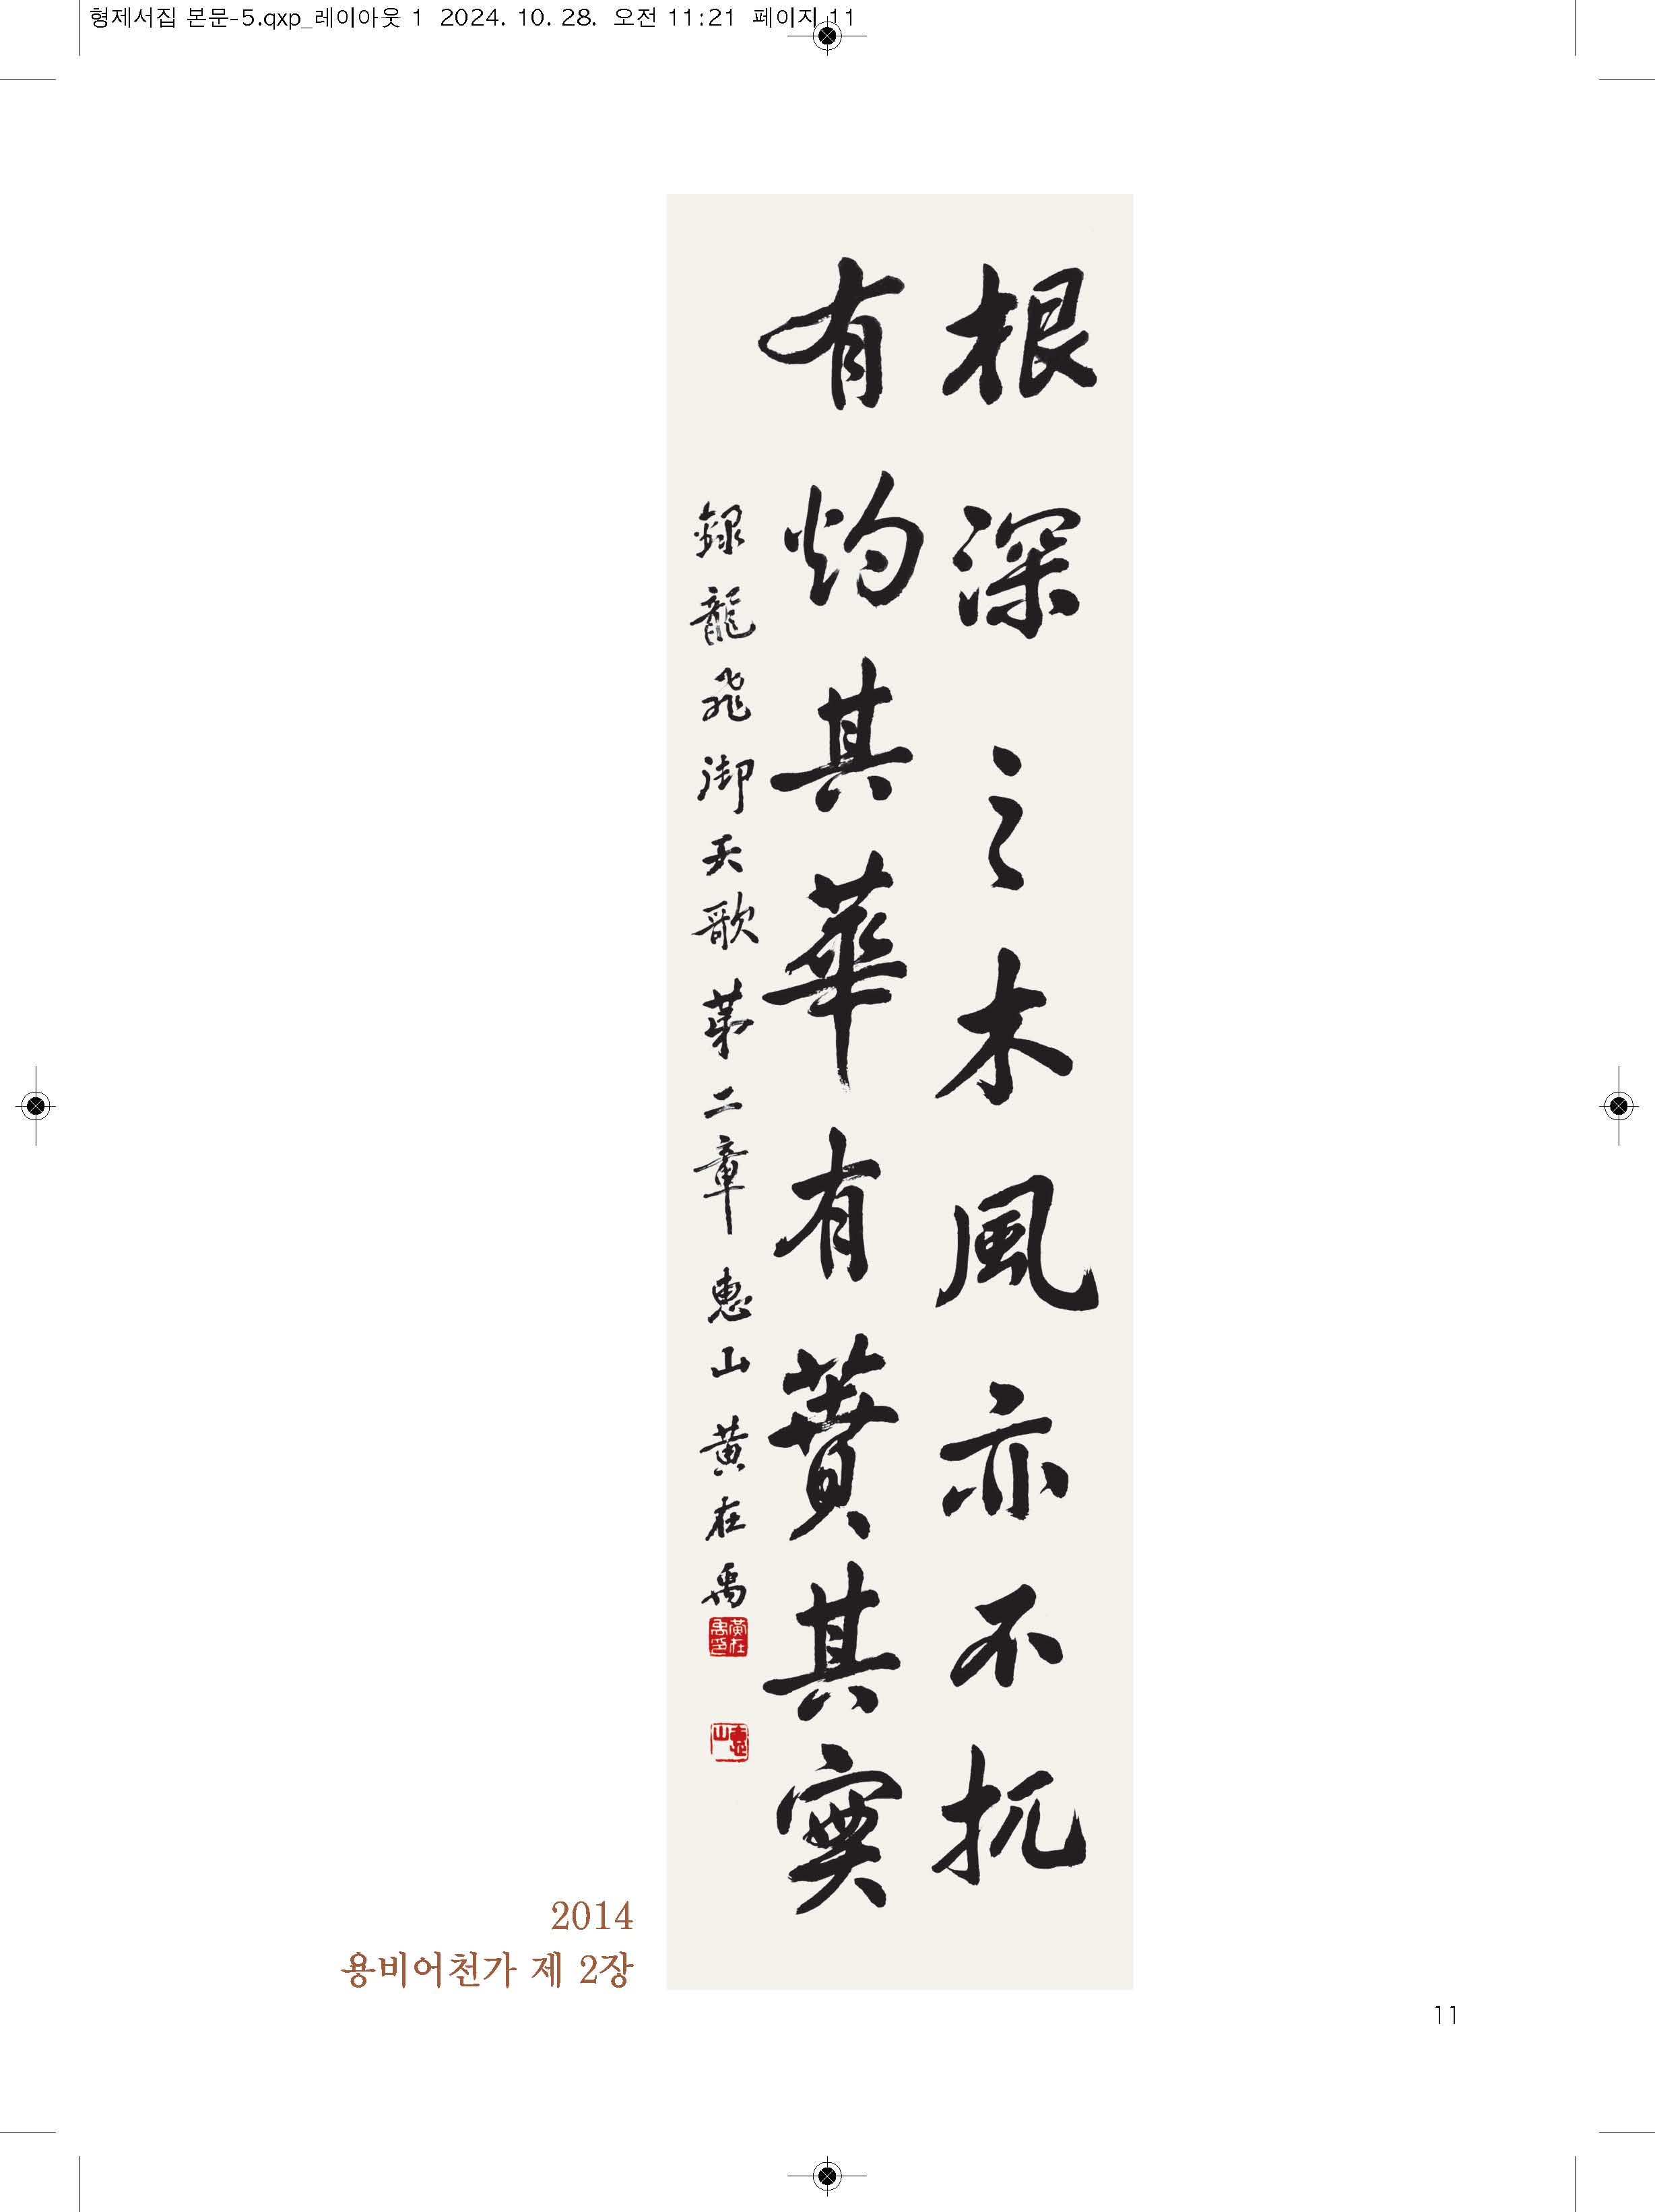 형제서집 본문-5.qxp_레이아웃 1 2024. 10. 28. 오전 11:21 페이지 11
根深之木風亦不扤
有灼其華有蕡其實
錄龍飛御天歌第二章 惠山 黃在禹
黃在禹印
惠山
2014
용비어천가 제 2장
11